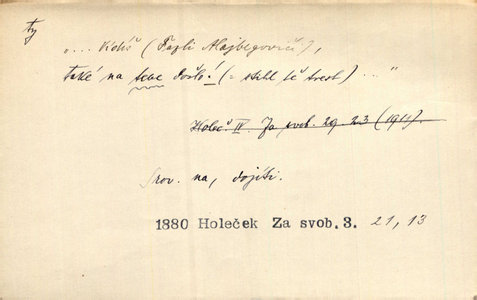 ty
„... Vidíš (Fazli Alajbegoviči),
také na tebe došlo! (= stihl tě trest) ..."
Holeč. IV. Za svob. 29. 23 (1911).
Srov. na, dojíti.
1880 Holeček Za svob. 3. 21, 13